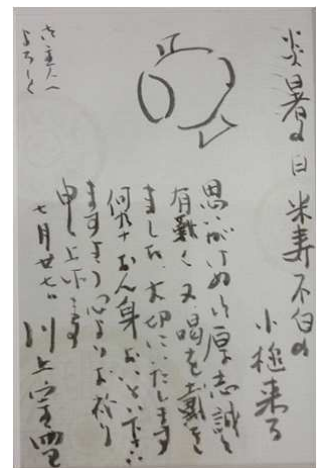 炎暑の日 米寿不白の
小槌来る
思いがけぬ御厚志誠に
有難く 又 喝を戴き
ました 大切にいたします
何卒おん身おいとい下さい
ますよう心よりお祈り
申し上げます
七月廿七日
川上
御主人へ
よろしく